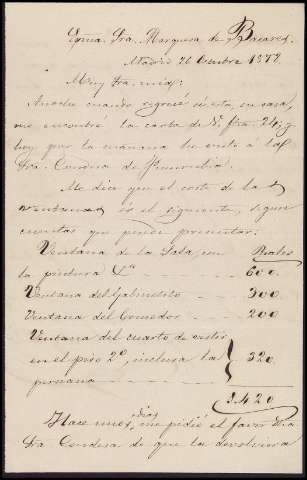 Exma. Sra. Marquesa de
Madrid 26 Octubre 1872
Muy Sra. mia:
Anoche cuando regresé a esta, su casa,
me encontré la carta de V. fha. 24; y
hoy por la mañana he visto á la
Sra. Condesa de
Me dice que el coste de las
ventanas es el siguiente, segun
cuentas que puede presentar:
Ventana de la Sala, con Reales
la pintura 600.
Ventana del Gabinetito 300
Ventana del Comedor 200
Ventana del cuarto de
en el piso 2º, inclusa la 320
persiana
1.420
Hace unos dias me pidió el favor
Sra Condesa de que la devolviera